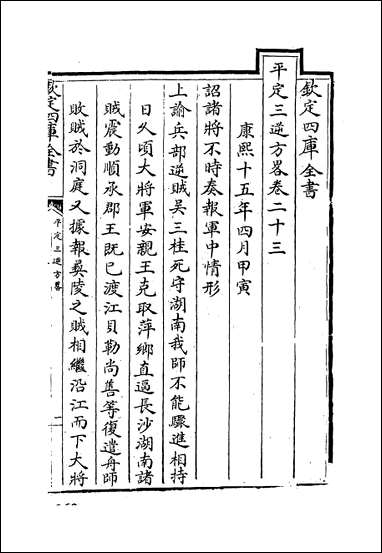 欽定四庫全書
平定三逆方畧卷二十三
康熙十五年四月甲寅
詔諸將不時奏報軍中情形
上諭兵部逆賊吳三桂死守湖南我師不能驟進相持
日久頃大將軍安親王克取萍鄉直逼長沙湖南諸
賊震動順承郡王既已渡江貝勒尚善等復遣舟師
敗賊於洞庭又據報彛陵之賊相繼沿江而下大將
欽定四庫全書
平定三逆方畧
一